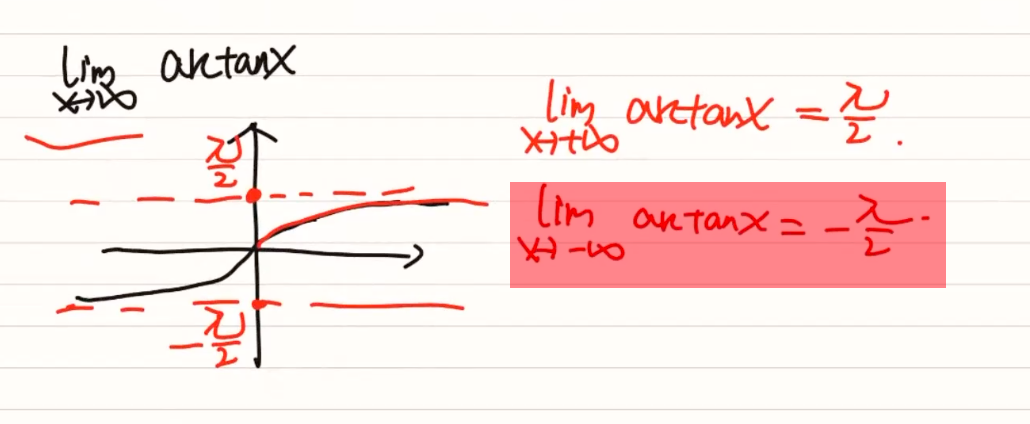 lim arctanx
x→∞
π/2
-π/2
lim arctanx = π/2.
x→+∞
lim arctanx = -π/2.
x→-∞